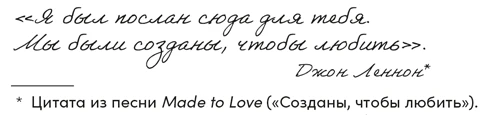 «Я был послан сюда для тебя.
Мы были созданы, чтобы любить».
Джон Леннон*
* Цитата из песни Made to Love («Созданы, чтобы любить»).